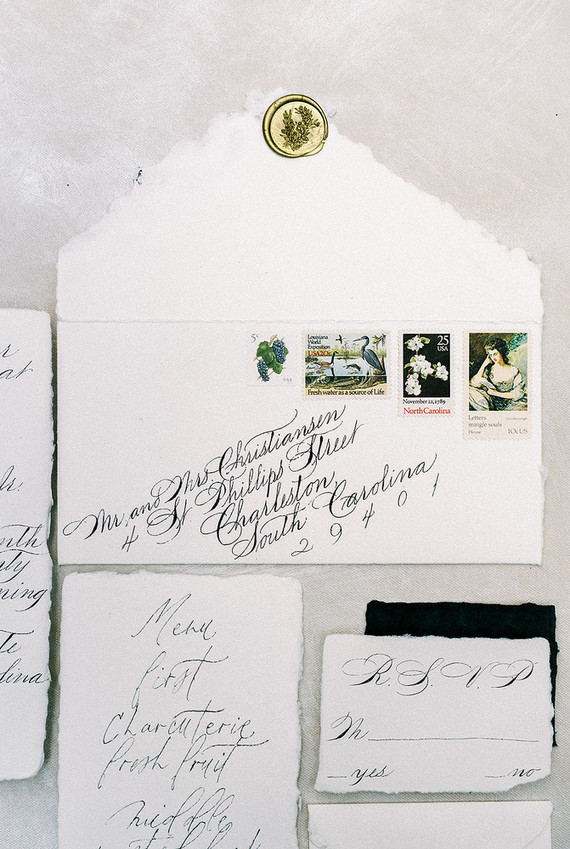 5¢
USA
Louisiana
World
Exposition
USA 20c
Fresh water as a source of Life
25
USA
November 21, 1789
North Carolina
Letters
mingle souls
Donne
10c US
Mr. and Mrs Christiansen
4 St Phillips Street
Charleston
South Carolina
2 9 4 0 1
at
Jr.
Menu
first
charcuterie
fresh fruit
middle
R.S.V.P
M
yes no